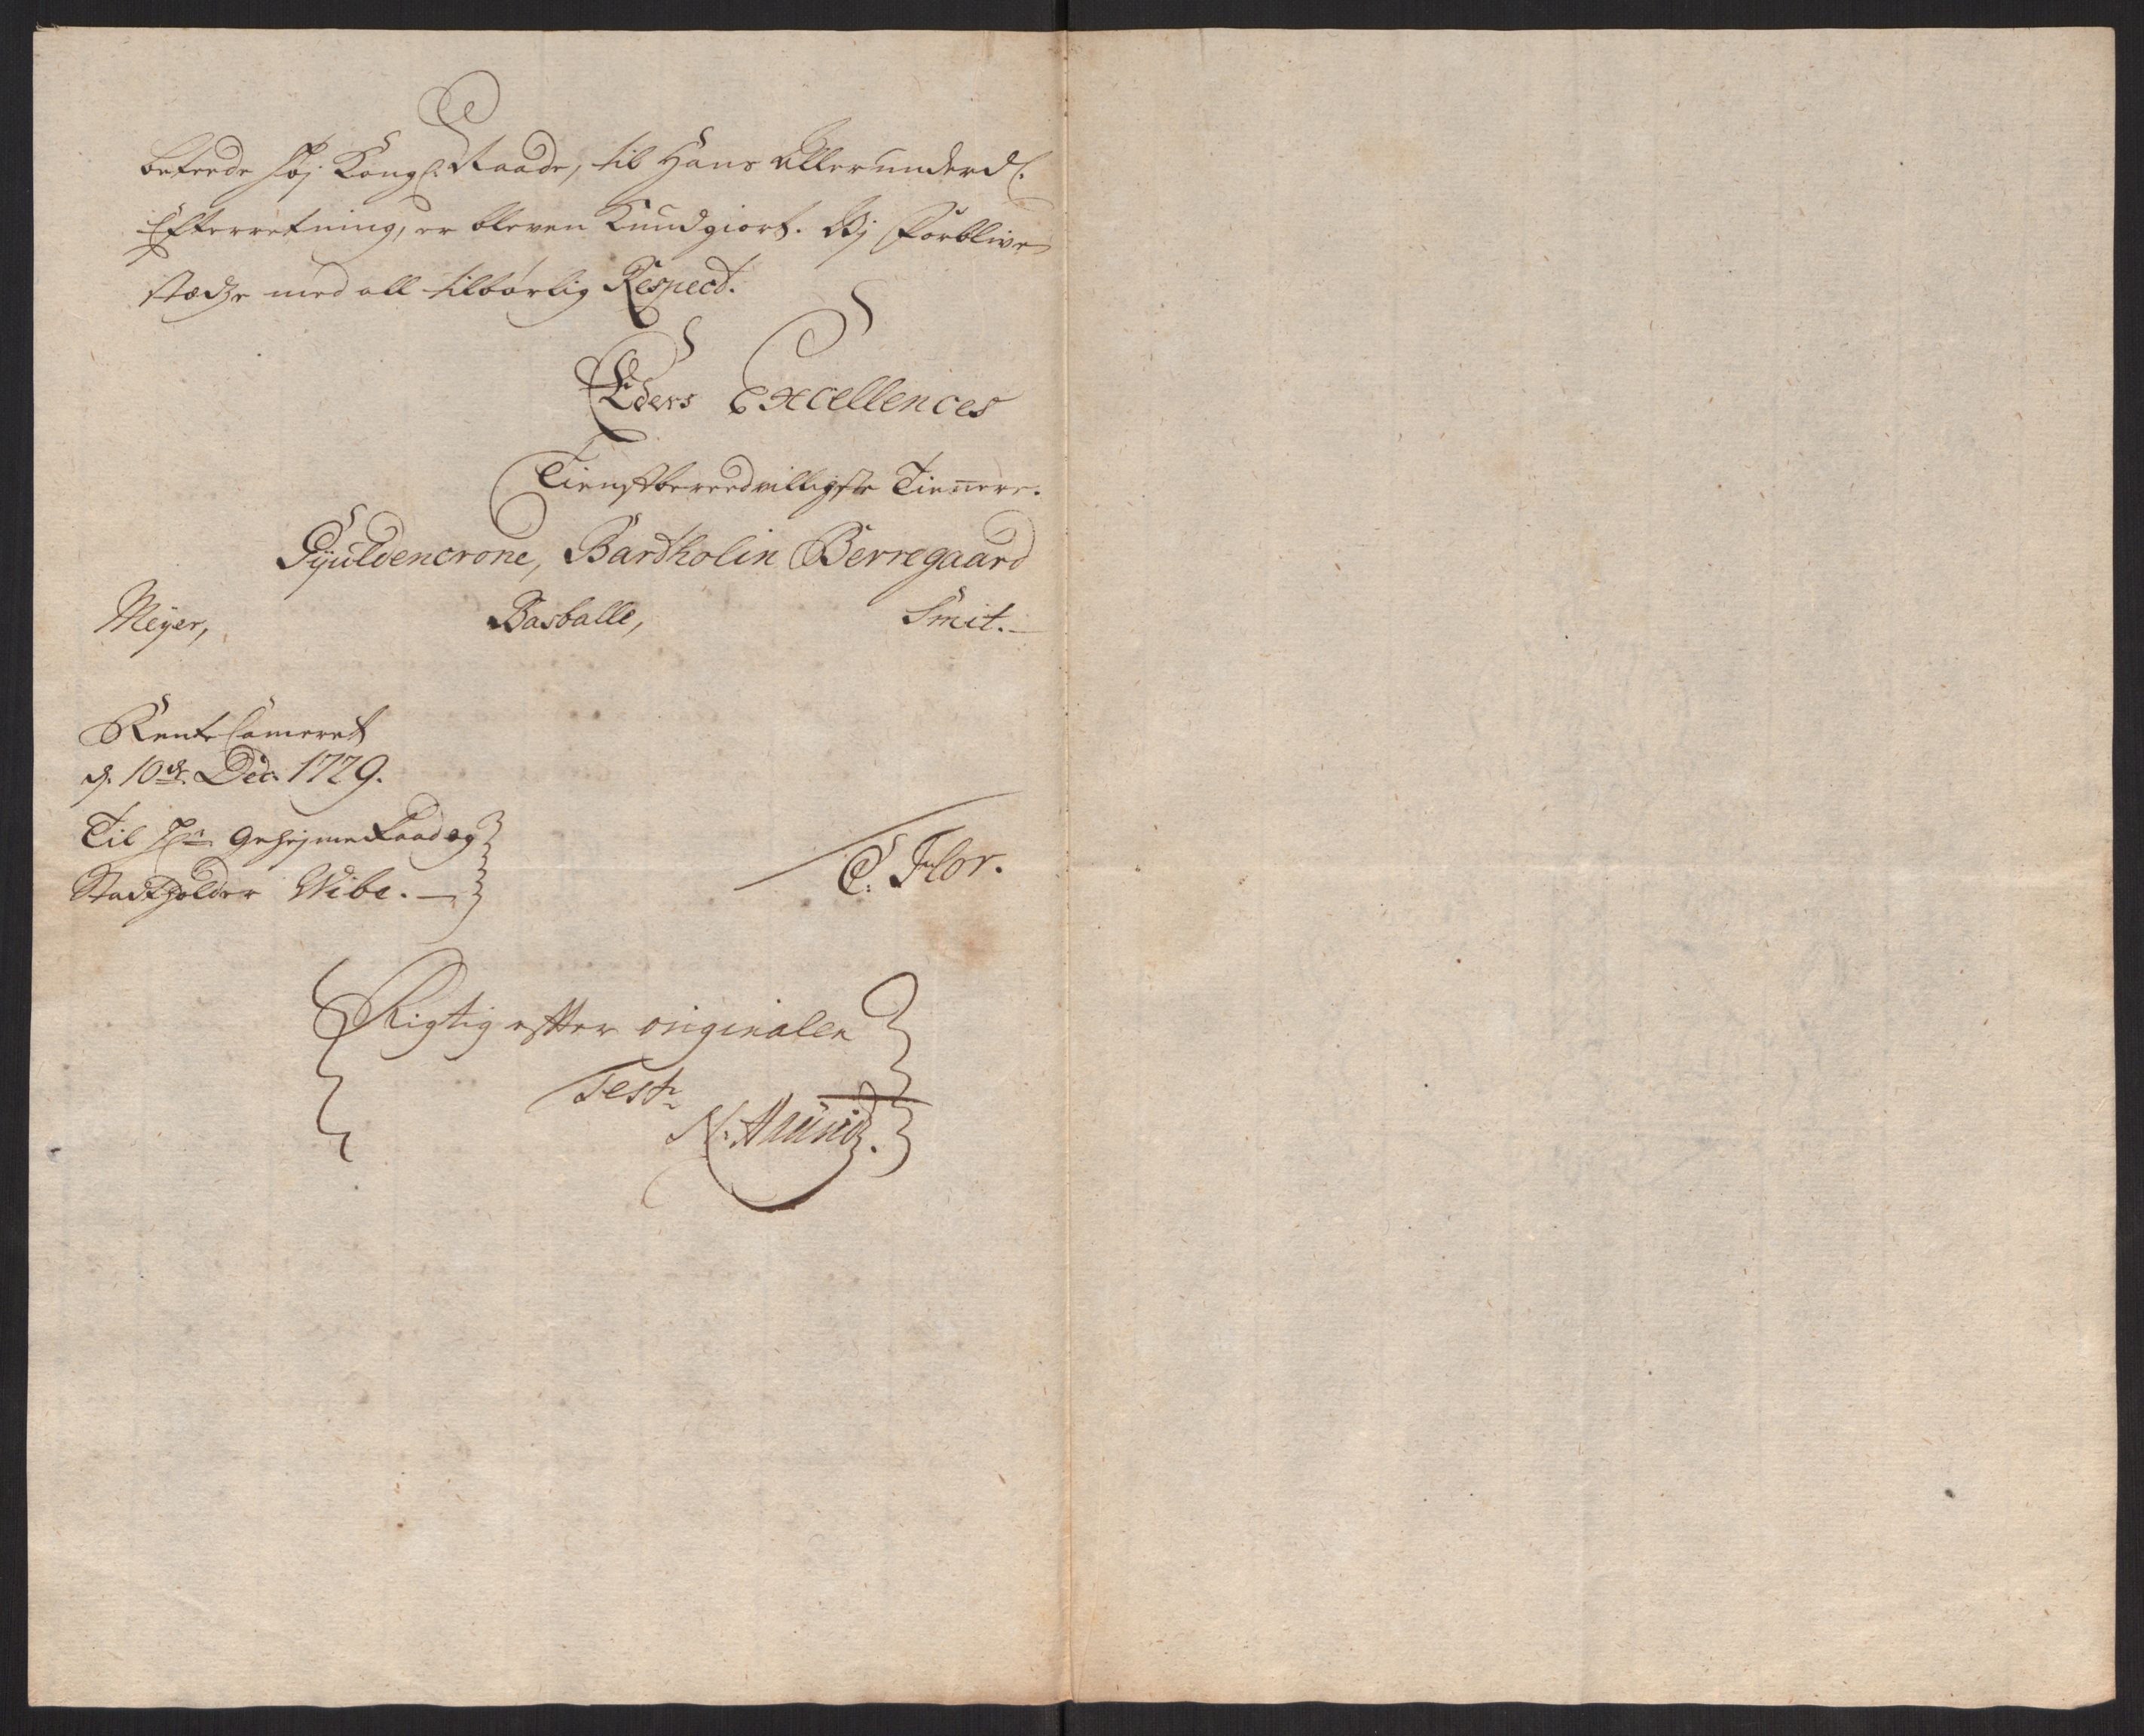 beteede høj Kongl: Naade, til Hans allerunderd:
Efterretning, er bleven Kundgiort. Vi forblive
stædze med all tilbørlig Respect.
Eders Excellences
Tienstbereedvilligste Tienere.
Gyüldencrone, Bartholin Berregaard
Meÿer, Basballe, Smit.
Rente Cameret
d. 10de Dec. 1729.
Til Hr. Gehejmeraad og
Stadtholder Wibe.
C. Flor.
Rigtig efter originalen
Test: